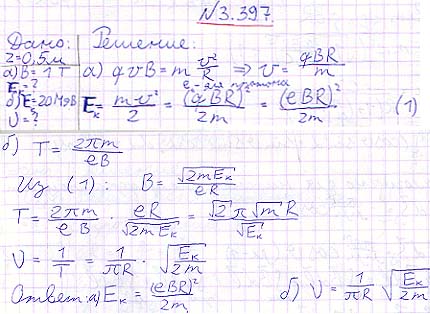 №3.397.
Дано: Решение:
r=0,5м
а) B=1 Т
Eк=?
б) E=20МэВ
υ=?
а) qvB = m v²/R ⇒ v = qBR/m
e - для протона
Eк = mv²/2 = (qBR)²/2m = (eBR)²/2m (1)
б) T = 2πm/eB
Из (1): B = √2mEк/eR
T = 2πm/eB · eR/√2mEк = √2 π√m R/√Eк
υ = 1/T = 1/πR · √Eк/2m
Ответ: а) Eк = (eBR)²/2m б) υ = 1/πR √Eк/2m